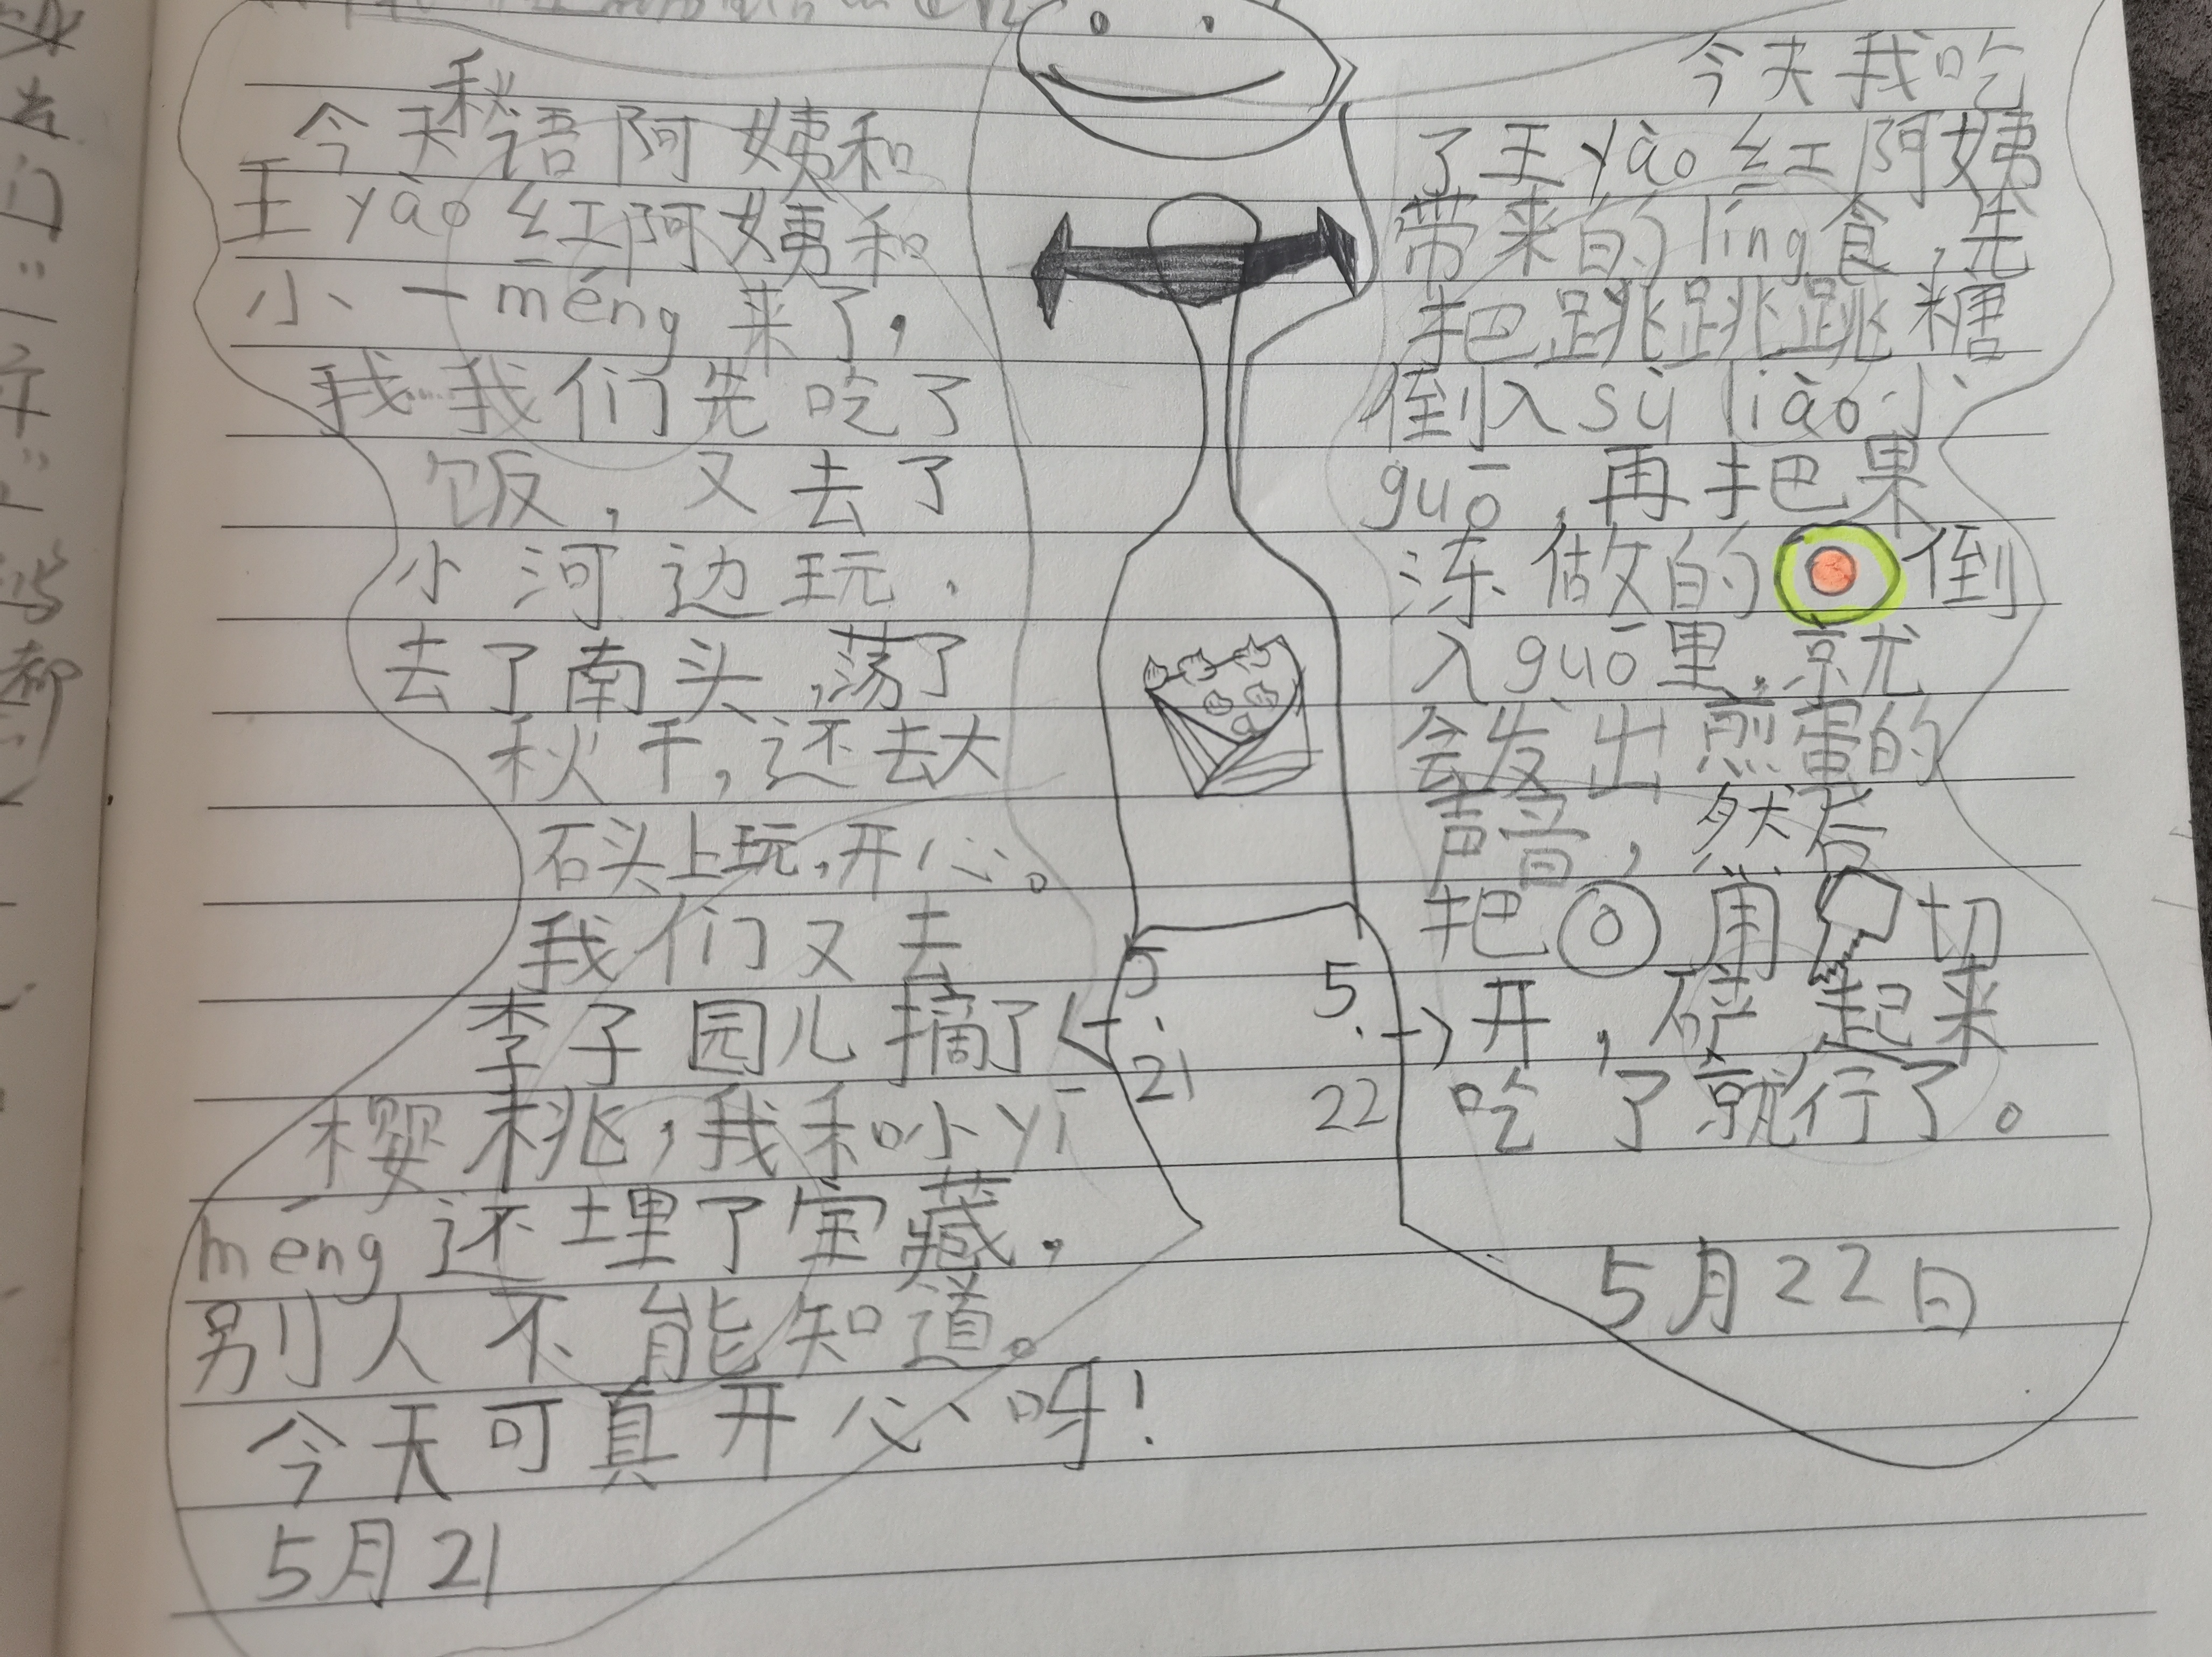 今天秋语阿姨和
王yào红阿姨和
小一méng来了，
我我们先吃了
饭，又去了
小河边玩．
去了南头，荡了
秋千，还去大
石头上玩，开心。
我们又去
李子园儿摘了
樱桃，我和小yī
méng还埋了宝藏．
别人不能知道。
今天可真开心呀！
5月21
5.21
5.22
今天我吃
了王yào红阿姨
带来的líng食，先
把跳跳跳糖
倒入sù liào小
guō，再把果
冻做的倒
入guō里，就
会发出煎蛋的
声音，然后
把用切
开，起来
吃了就行了。
5月22日